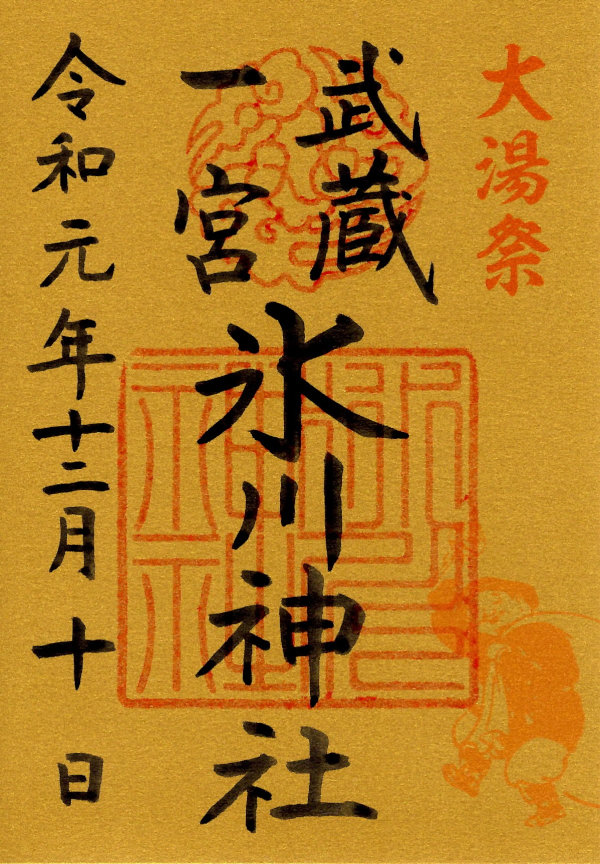 大湯祭
武蔵
一宮
氷川神社
令和元年十二月十日